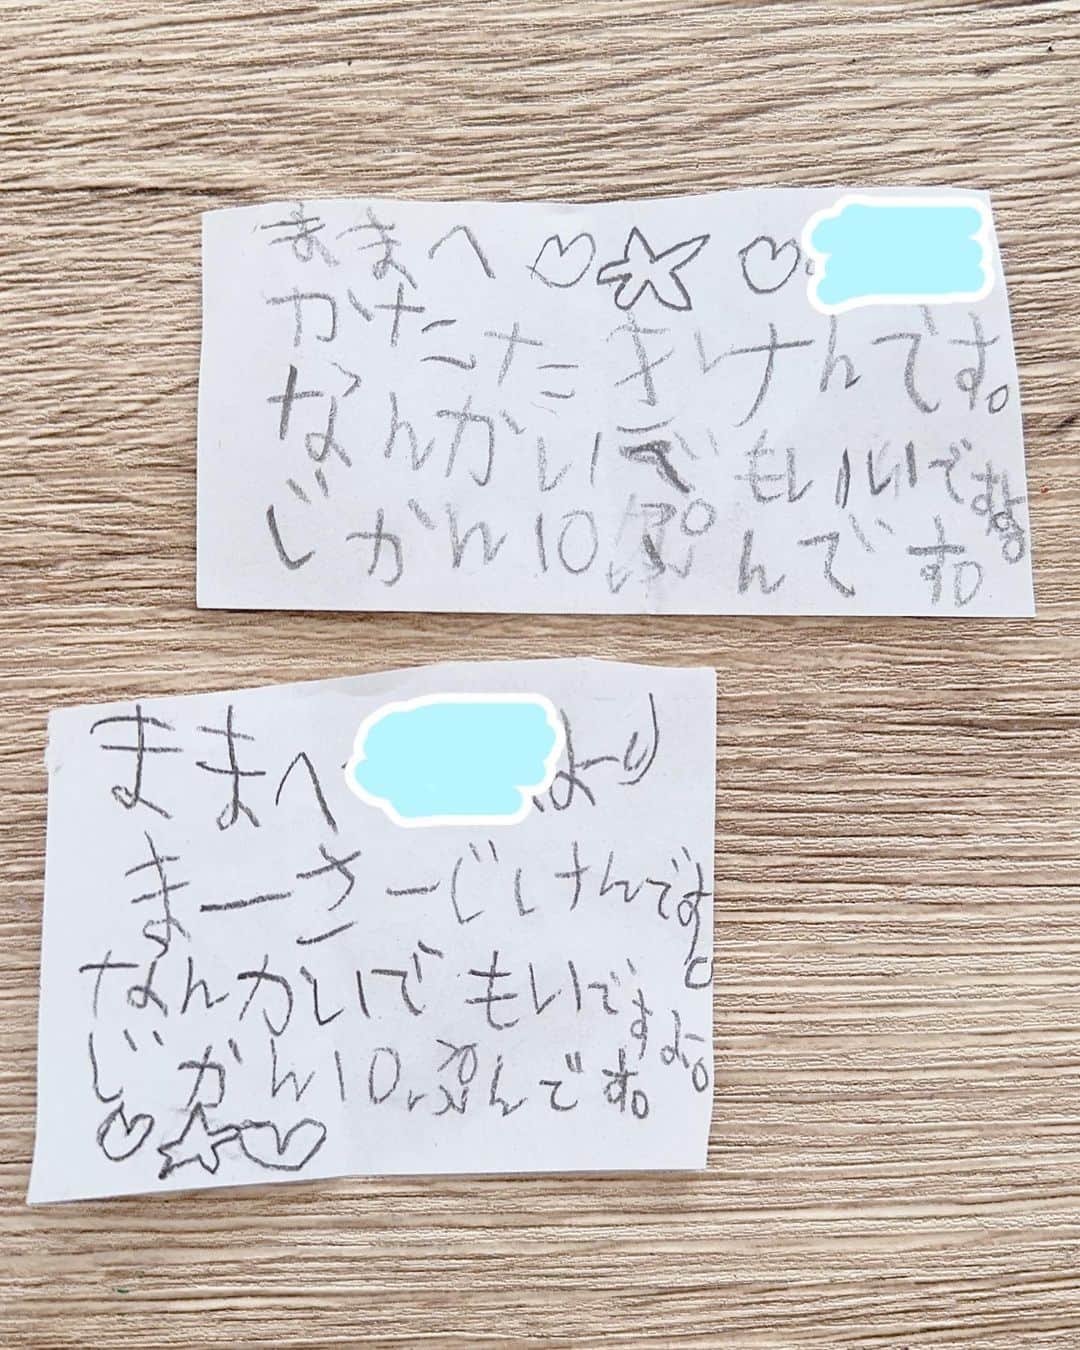 ままへ♡☆♡
かたたたきけんです。
なんかいでもいいですよ。
じかん10ぷんです。
ままへ より
まーさーじけんです。
なんかいでもいいですよ。
じかん10ぷんです。
♡☆♡